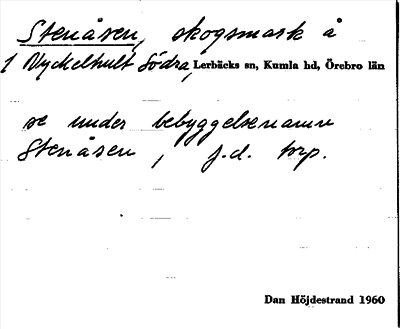 Stenåsen, skogsmark å
1 Nyckelhult Södra, Lerbäcks sn, Kumla hd, Örebro län
se under bebyggelsenamn
Stenåsen, f.d. torp.
Dan Höjdestrand 1960